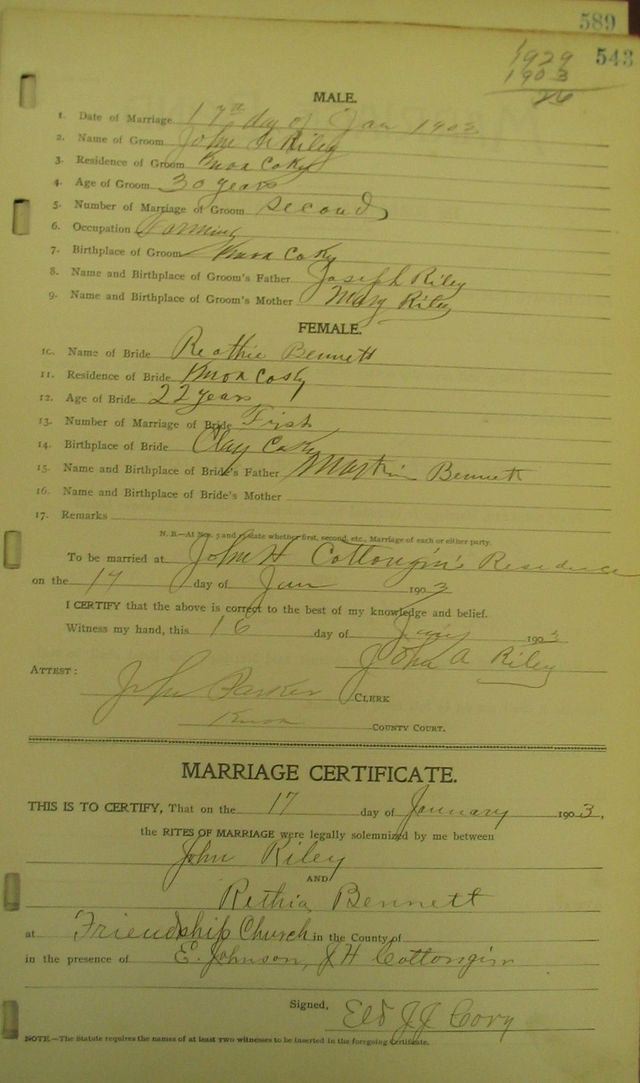 589
543
1929
1903
26
MALE.
1. Date of Marriage 17th day of Jan 1903
2. Name of Groom John A Riley
3. Residence of Groom Knox Co Ky
4. Age of Groom 30 years
5. Number of Marriage of Groom second
6. Occupation Farming
7. Birthplace of Groom Knox Co Ky
8. Name and Birthplace of Groom's Father Joseph Riley
9. Name and Birthplace of Groom's Mother Mary Riley
FEMALE.
10. Name of Bride Reathie Bennett
11. Residence of Bride Knox Co Ky
12. Age of Bride 22 years
13. Number of Marriage of Bride First
14. Birthplace of Bride Clay Co Ky
15. Name and Birthplace of Bride's Father Martin Bennett
16. Name and Birthplace of Bride's Mother
17. Remarks
N. B.—At Nos. 5 and 13 state whether first, second, etc., Marriage of each or either party.
To be married at John H Cottongin's Residence
on the 17 day of Jan 1903
I CERTIFY that the above is correct to the best of my knowledge and belief.
Witness my hand, this 16 day of Jany 1903
John A Riley
ATTEST:
John Parker CLERK
Knox COUNTY COURT.
MARRIAGE CERTIFICATE.
THIS IS TO CERTIFY, That on the 17 day of January 1903,
the RITES OF MARRIAGE were legally solemnized by me between
John Riley
AND
Rethia Bennett
at Friendship Church in the County of
in the presence of E. Johnson, J H Cottongin
Signed, Eld J J Cory
NOTE.—The Statute requires the names of at least two witnesses to be inserted in the foregoing Certificate.